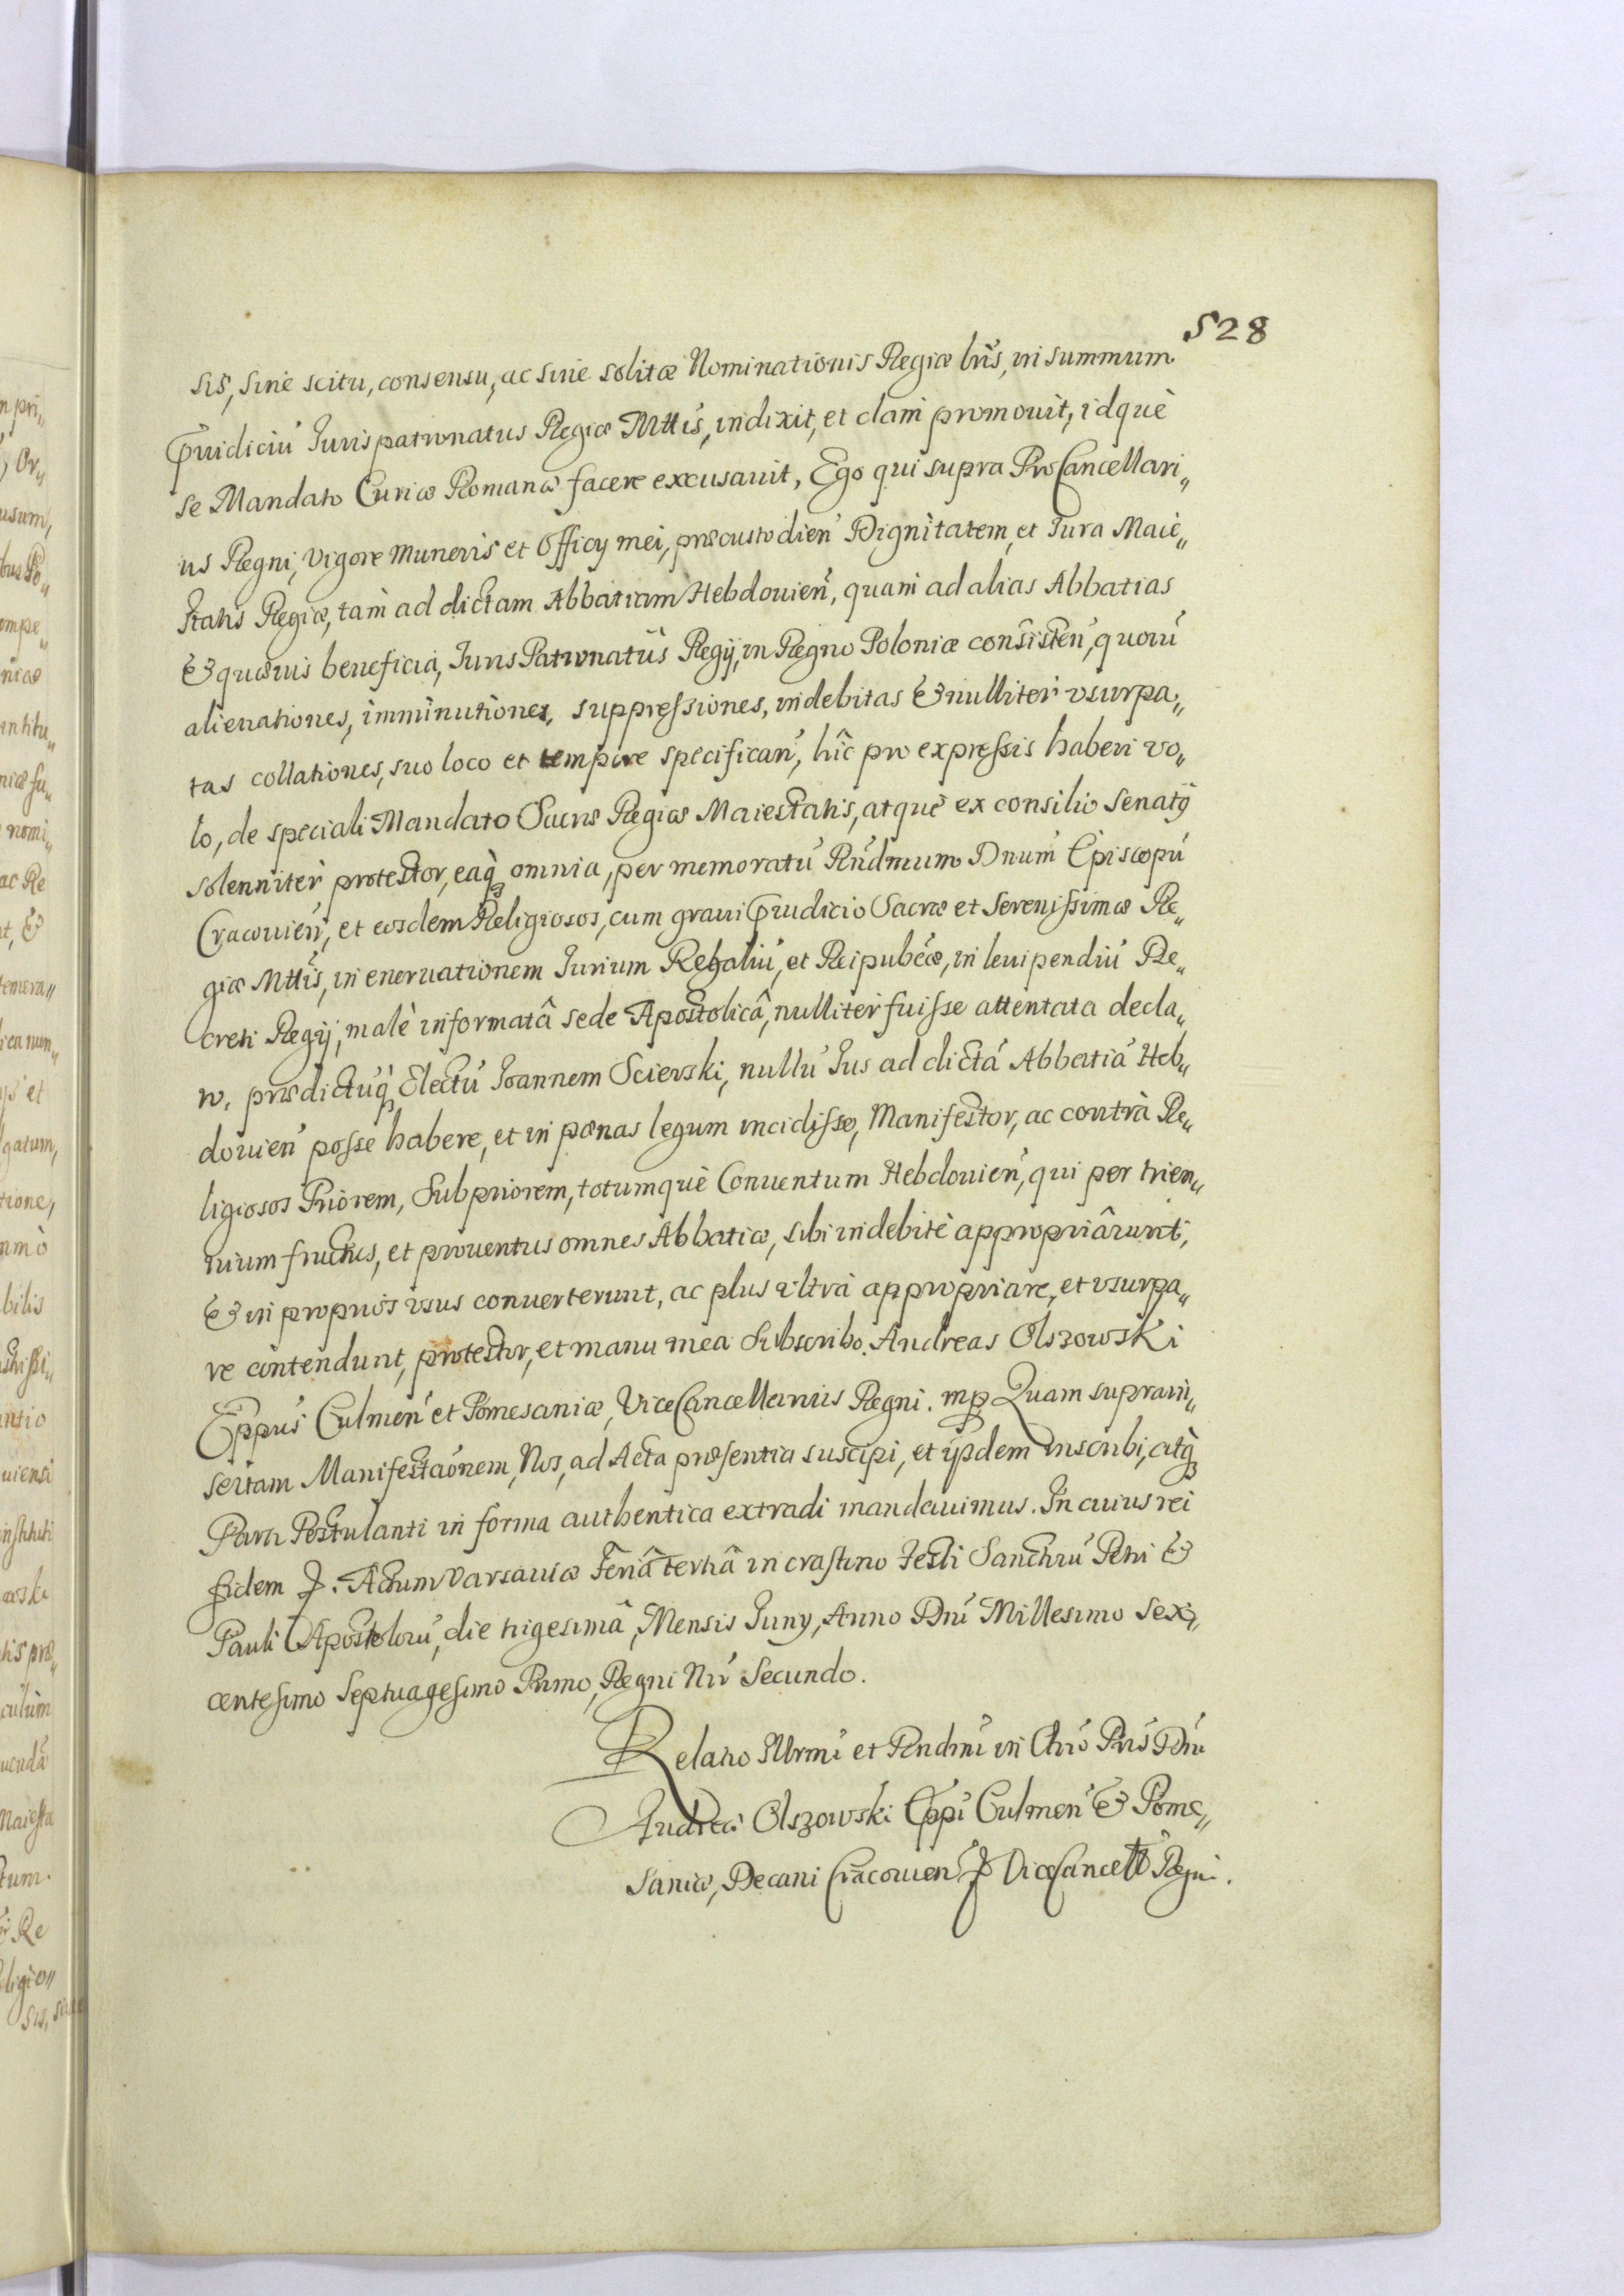 528
sis, sine scitu, consensu, ac sine solitæ Nominationis Regiæ lris, in summum
Pruidiciu Jurispatronatus Regiæ Mttis, indixit, et clam promouit, idquè
se Mandato Curiæ Romanæ facere excusauit, Ego qui supra ProCancellari„
us Regni, Vigore Muneris et Officy mei, præcustodien Dignitatem, et Jura Maie„
statis Regiæ, tam ad dictam Abbatiam Hebdouien, quam ad alias Abbatias
& quæuis beneficia, Juris Patronatus Regij, in Regno Poloniæ consisten, quoru
alienationes, imminutiones, suppressiones, indebitas & nulliter vsurpa„
tas collationes, suo loco et tempore specifican, hîc pro expressis haberi vo„
lo, de speciali Mandato Sacræ Regiæ Maiestatis, atquè ex consilio Senatq
solenniter protestor, eaq omnia, per memoratu Rndmum Dnum Episcopu
Cracouien, et eosdem Religiosos, cum graui Prudicio Sacræ et Serenissimæ Re„
giæ Mttis, in eneruationem Jurium Regaliu, et Reipubcæ, in leuipendiu De„
creti Regij, malè informatâ sede Apostolicâ, nulliter fuisse attentata decla„
ro, prædictuq Electu Joannem Scierski, nullu Jus ad dicta Abbatia Heb„
douien posse habere, et in pœnas legum incidisse, Manifestor, ac contrà Re„
ligiosos Priorem, Subpriorem, totumquè Conuentum Hebdouien, qui per trien„
nium fructus, et prouentus omnes Abbatiæ, sibi indebitè appropriârunt,
& in proprios vsus conuerterunt, ac plus vltrà appropriare, et vsurpa„
re contendunt, protestor, et manu mea Subscribo. Andreas Olszowski
Eppus Culmen et Pomesaniæ, ViceCancellarius Regni. mp Quam suprain„
sertam Manifestaonem, Nos, ad Acta præsentia suscipi, et ijsdem inscribi, atq
Parti Postulanti in forma authentica extradi mandauimus. In cuius rei
fidem &. Actum Varsauiæ Feriâ tertiâ in crastino Festi Sanctoru Petri &
Pauli Apostoloru, die trigesimâ, Mensis Juny, Anno Dni Millesimo Sex„
centesimo Septuagesimo Primo, Regni Nri Secundo.
Relatio Illrmi et Rendmi in Chro Pris Dni
Andreæ Olszowski Eppi Culmen & Pome„
saniæ, Decani Cracouien & ViceCancell Regni.